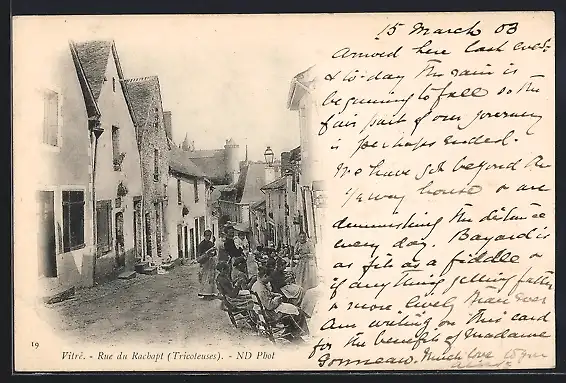 15 March 03
Arrived here last eveg.
& to-day the rain is
beginning to fall so the
fair part of our journey
is perhaps ended.
We have got beyond the
½ way house & are
diminishing the distance
every day. Bayard is
as fit as a fiddle &
if anything getting fatter
& more lively than ever
Am writing on this card
for the benefit of Madame
Much love to
19
Vitré. - Rue du Rachapt (Tricoteuses). - ND Phot